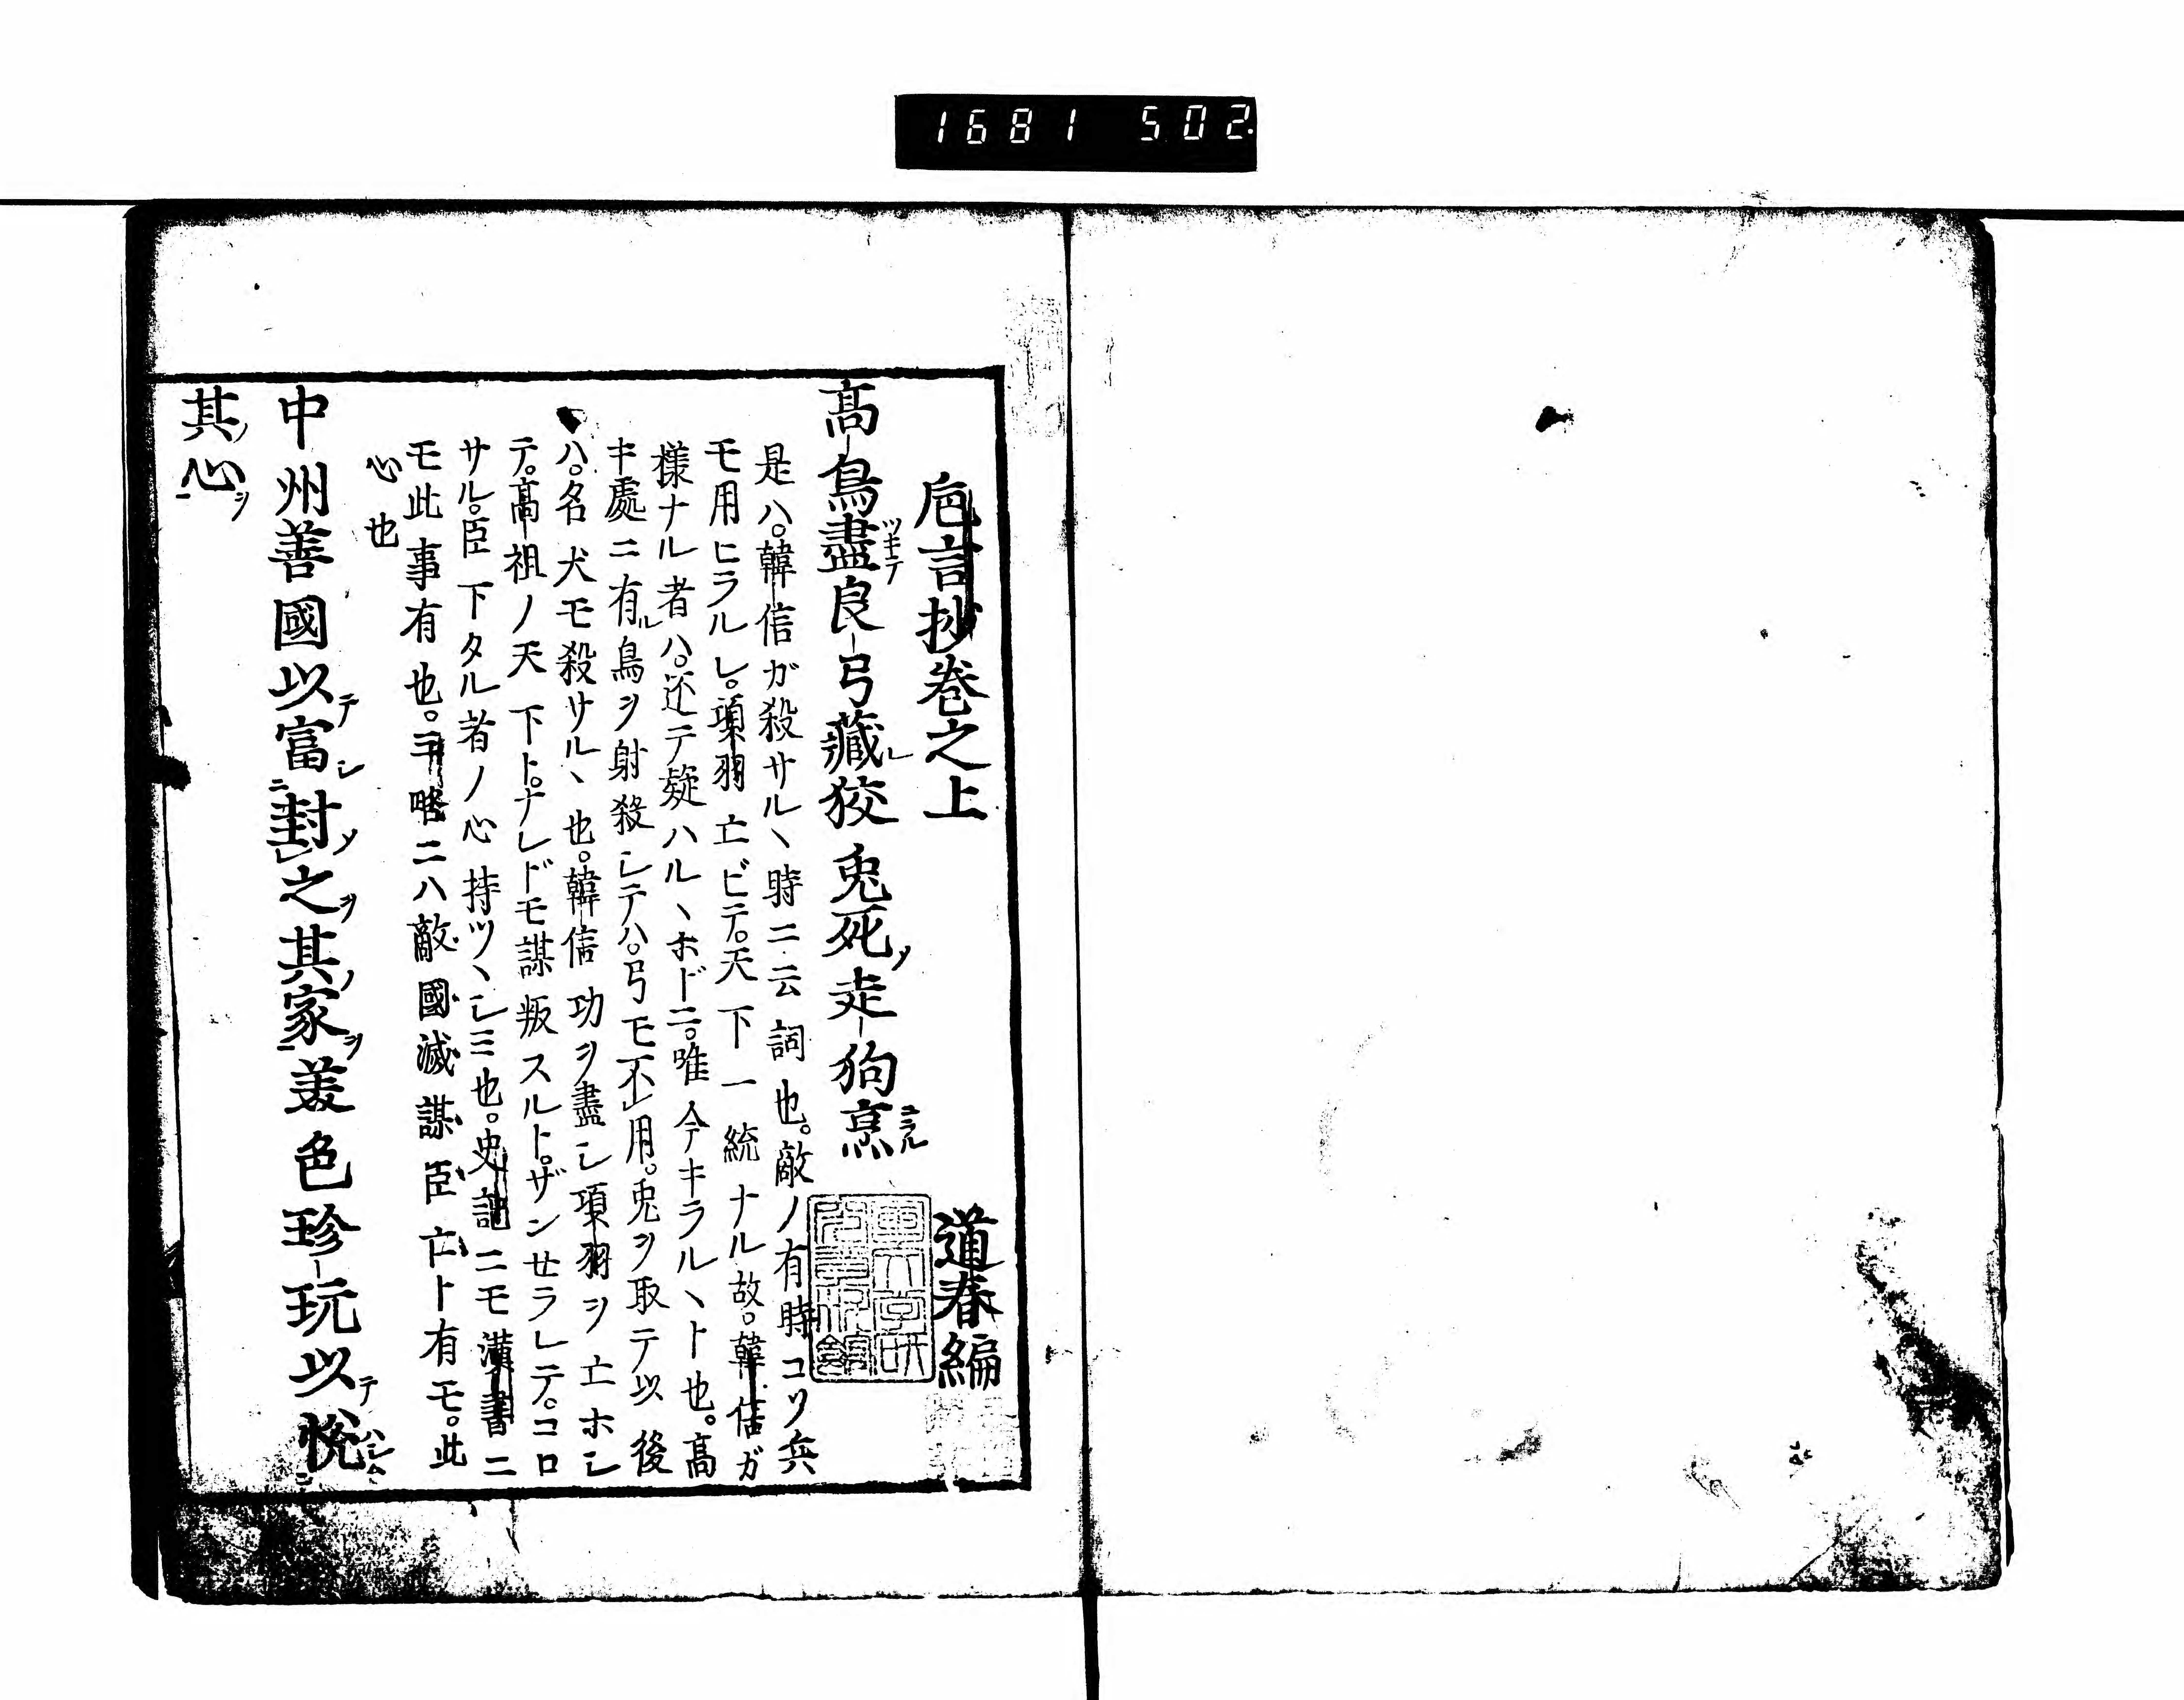 1681 502.
巵言抄巻之上
道春編
高鳥盡良弓藏狡兎死走狗烹
是ハ。韓信ガ殺サルヽ時ニ云詞也。敵ノ有時コソ兵
モ用ヒラルレ。項羽亡ビテ。天下一統ナル故。韓信ガ
様ナル者ハ。还テ疑ハルヽホドニ。唯今キラルヽト也。高
キ處ニ有ル鳥ヲ射殺シテハ。弓モ不用。兎ヲ取テ以後
ハ。名犬モ殺サルヽ也。韓信功ヲ盡シ項羽ヲ亡ホシ
テ。高祖ノ天下ト。ナレドモ謀叛スルト。ザンせラレテ。コロ
サル。臣下タル者ノ心持ツヽシミ也。史記ニモ漢書ニ
モ此事有也。三略ニハ敵國滅謀臣亡ト有モ。此
心也
中州善國以富封之其家美色珍玩以悦
其心